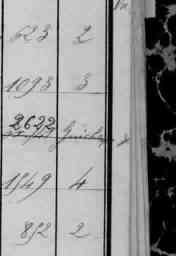 623 2
1093 3
2622
1549 4
852 2